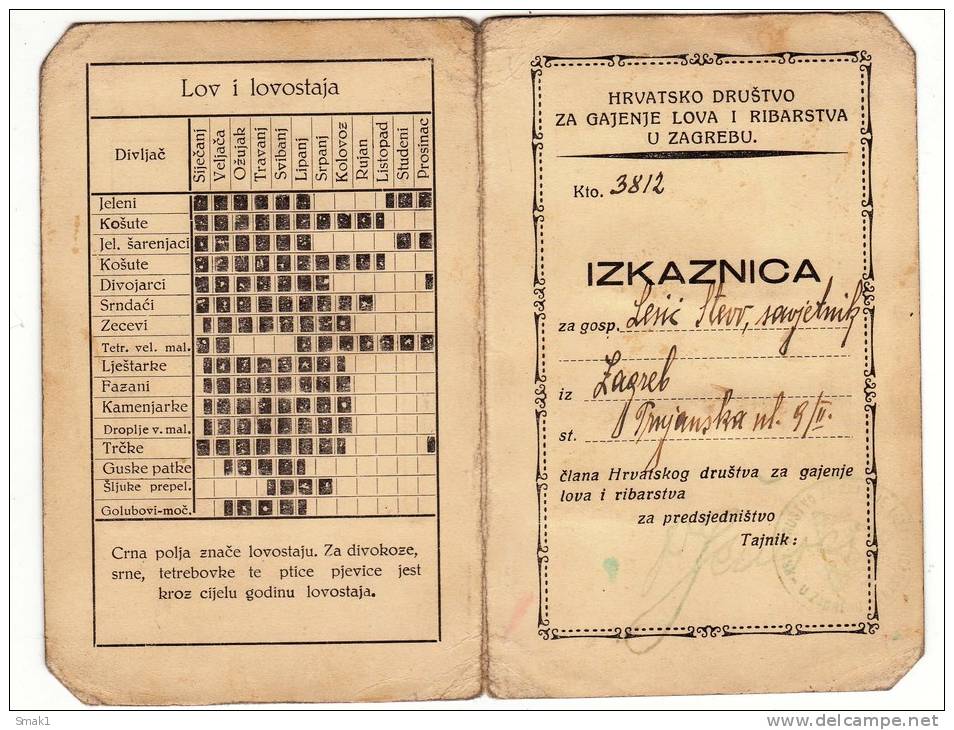 Lov i lovostaja
Divljač
Siječanj
Veljača
Ožujak
Travanj
Svibanj
Lipanj
Srpanj
Kolovoz
Rujan
Listopad
Studeni
Prosinac
Jeleni
Košute
Jel. šarenjaci
Košute
Divojarci
Srndaći
Zecevi
Tetr. vel. mal.
Lještarke
Fazani
Kamenjarke
Droplje v. mal.
Trčke
Guske patke
Šljuke prepel.
Golubovi-moč.
Crna polja znače lovostaju. Za divokoze,
srne, tetrebovke te ptice pjevice jest
kroz cijelu godinu lovostaja.
HRVATSKO DRUŠTVO
ZA GAJENJE LOVA I RIBARSTVA
U ZAGREBU.
Kto. 3812
IZKAZNICA
za gosp. Lesić Stevo, savjetnik
iz Zagreb
st. Trnjanska ul. 9/II.
člana Hrvatskog društva za gajenje
lova i ribarstva
za predsjedništvo
Tajnik:
Smak1
www.delcampe.net